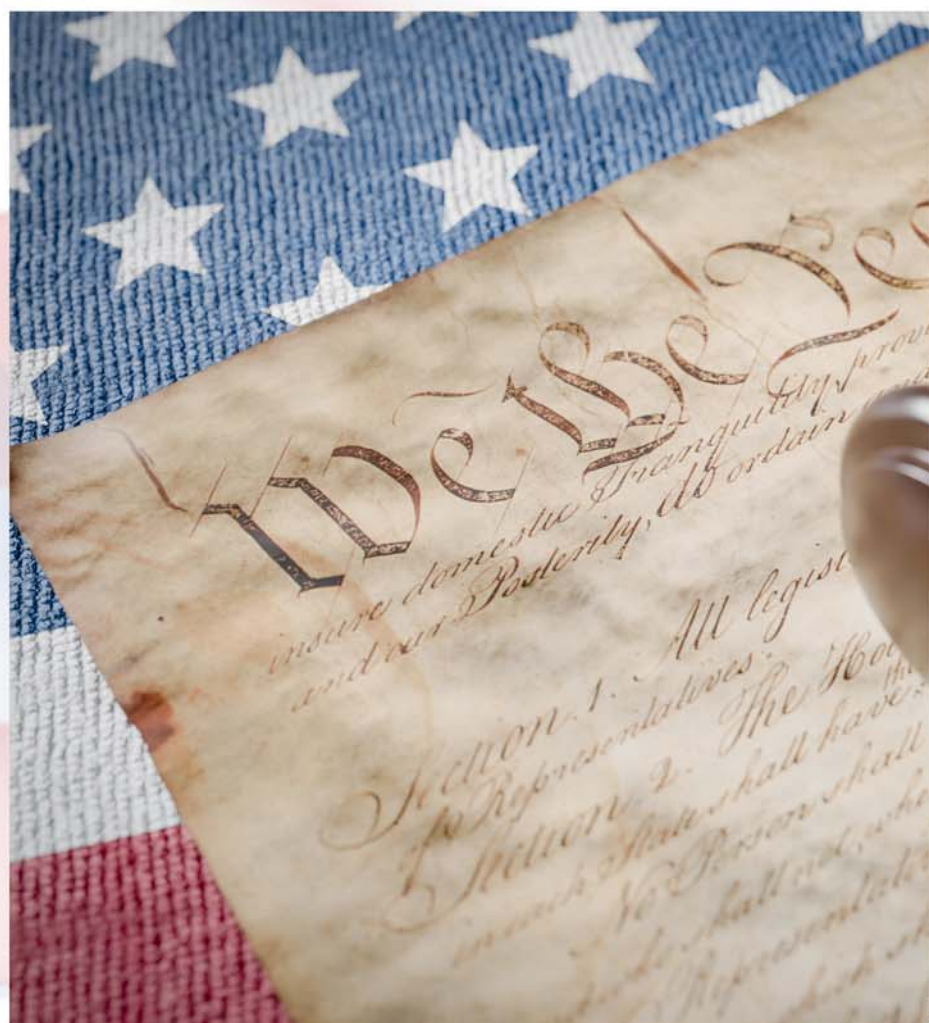 We the Peo
insure domestic Tranquility, provi
and our Posterity, do ordain and
Section. 1. All legisl
of Representatives.
Section. 2. The Hou
in each State shall have the
No Person shall
who shall not, whe
Representativ
which sh